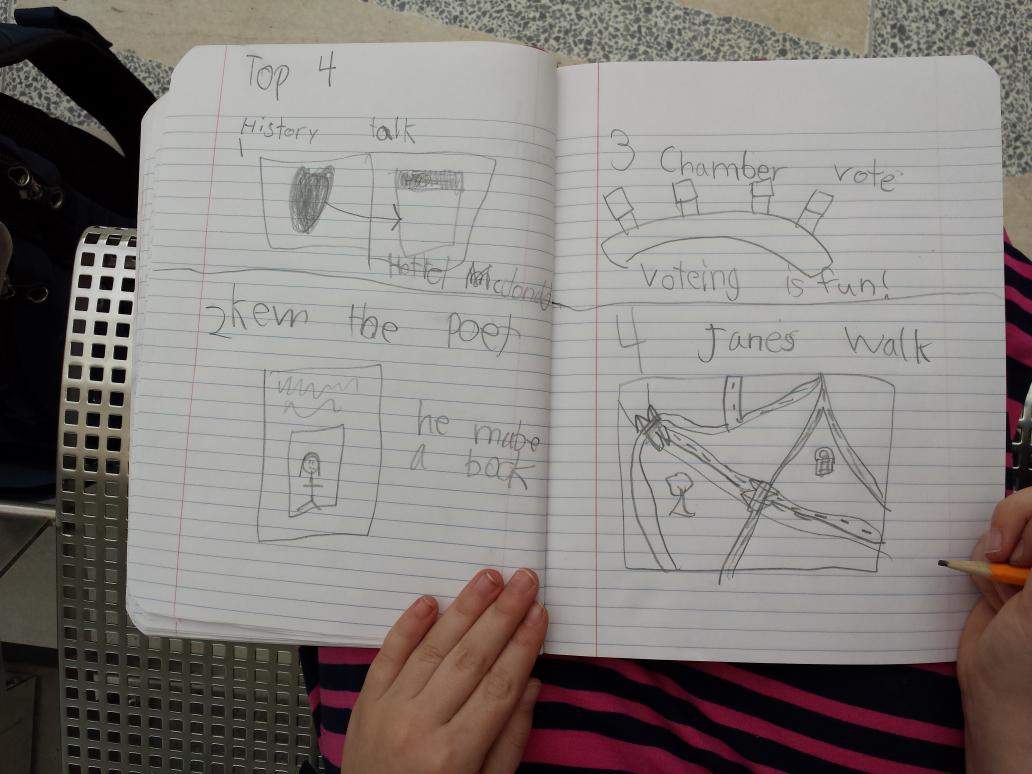 Top 4
History talk
1
Hottel
2 Kevin the Poet
he mabe
a book
3 Chamber vote
Voteing is fun!
4 Jane's Walk